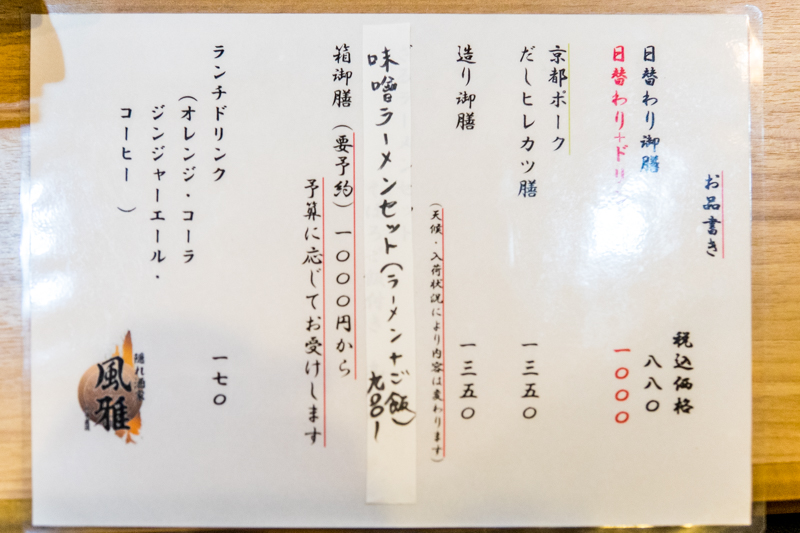 お品書き
税込価格
日替わり御膳 八八〇
日替わり+ド 一〇〇〇
京都ポーク
だしヒレカツ膳 一三五〇
造り御膳 一三五〇
(天候・入荷状況により内容は変わります)
味噌ラーメンセット(ラーメン+ご飯)
箱御膳(要予約)一〇〇〇円から
予算に応じてお受けします
ランチドリンク 一七〇
(オレンジ・コーラ
ジンジャーエール・
コーヒー)
隠れ酒家
風雅